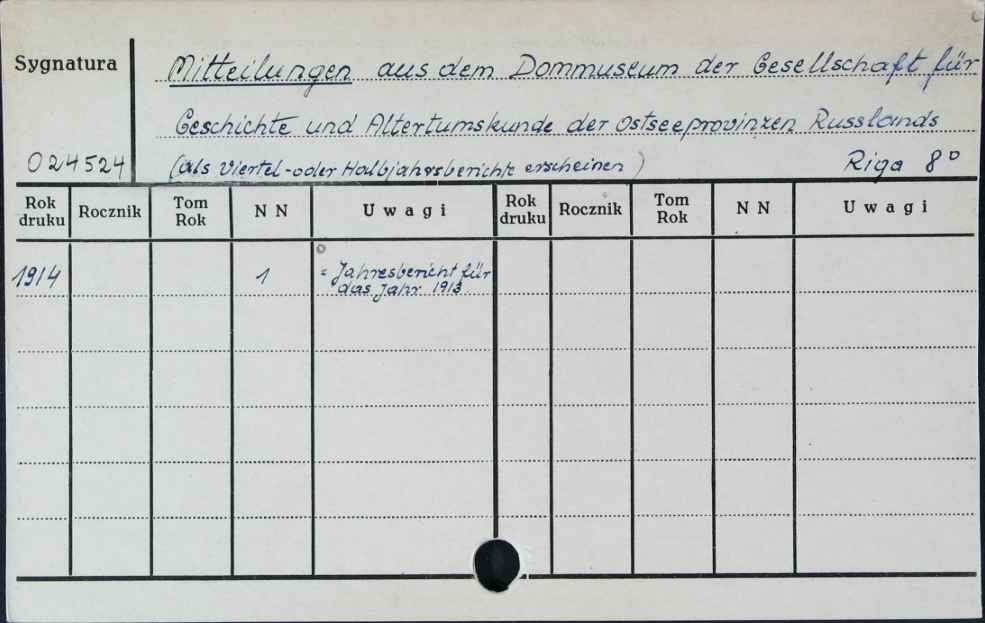 Sygnatura
Mitteilungen aus dem Dommuseum der Gesellschaft für
Geschichte und Altertumskunde der Ostseeprovinzen Russlands
024524
(als Viertel-oder Halbjahrsberichte erscheinen)
Riga 8°
Rok druku Rocznik Tom Rok N N Uwagi Rok druku Rocznik Tom Rok N N Uwagi
1914 1 = Jahresbericht für
das Jahr 1913